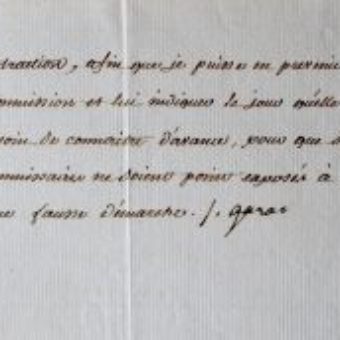 traction, afin que je puisse en prevenir
mmission et lui indiquer le jour qu'elle
soin de connaitre d'avance, pour que s
mmissaires ne soient point exposés à
ne fausse démarche ./.